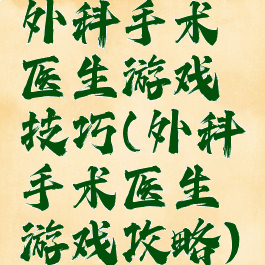 外科手术
医生游戏
技巧(外科
手术医生
游戏攻略)